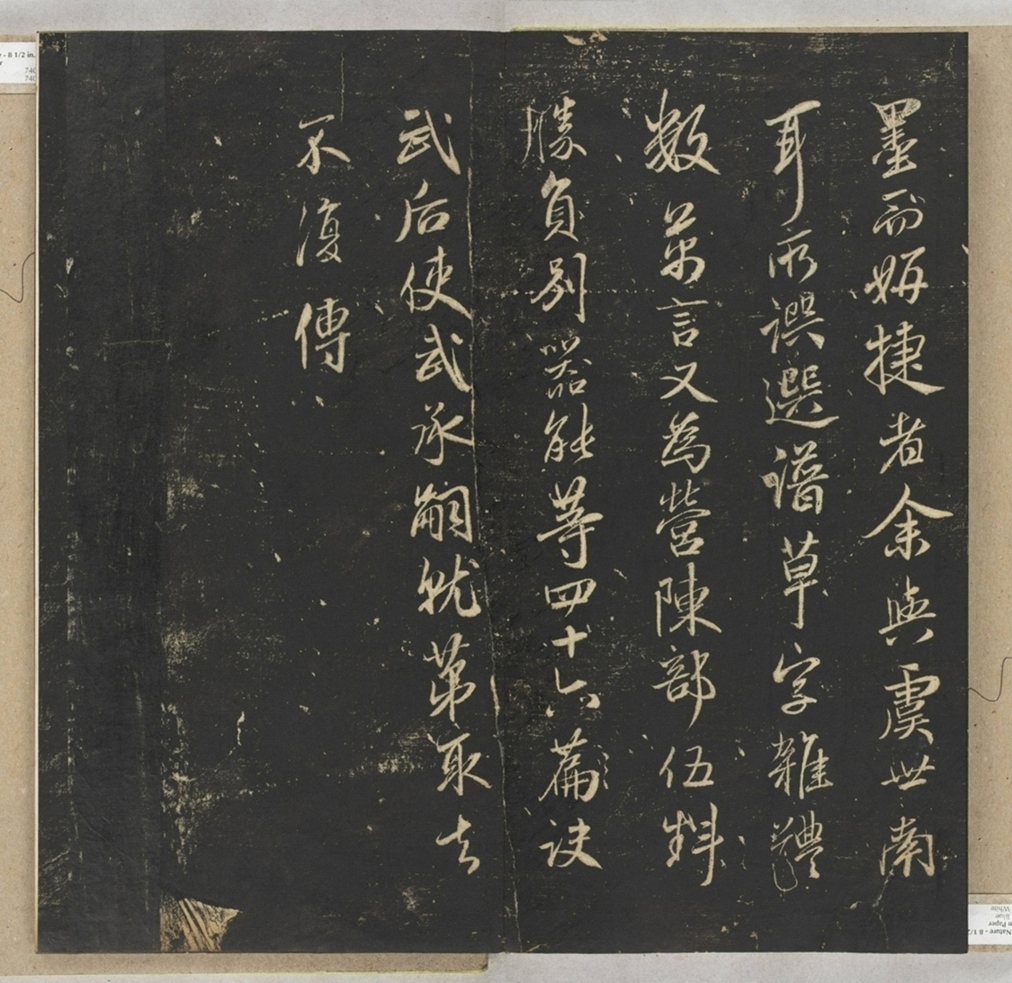 墨而妍捷者余與虞世南
耳所譔選譜草字雜體
數萬言又為營陳部伍料
勝負別器能等四十六篇訣
武后使武承嗣就第取去
不復傳
- 8 1/2 in.